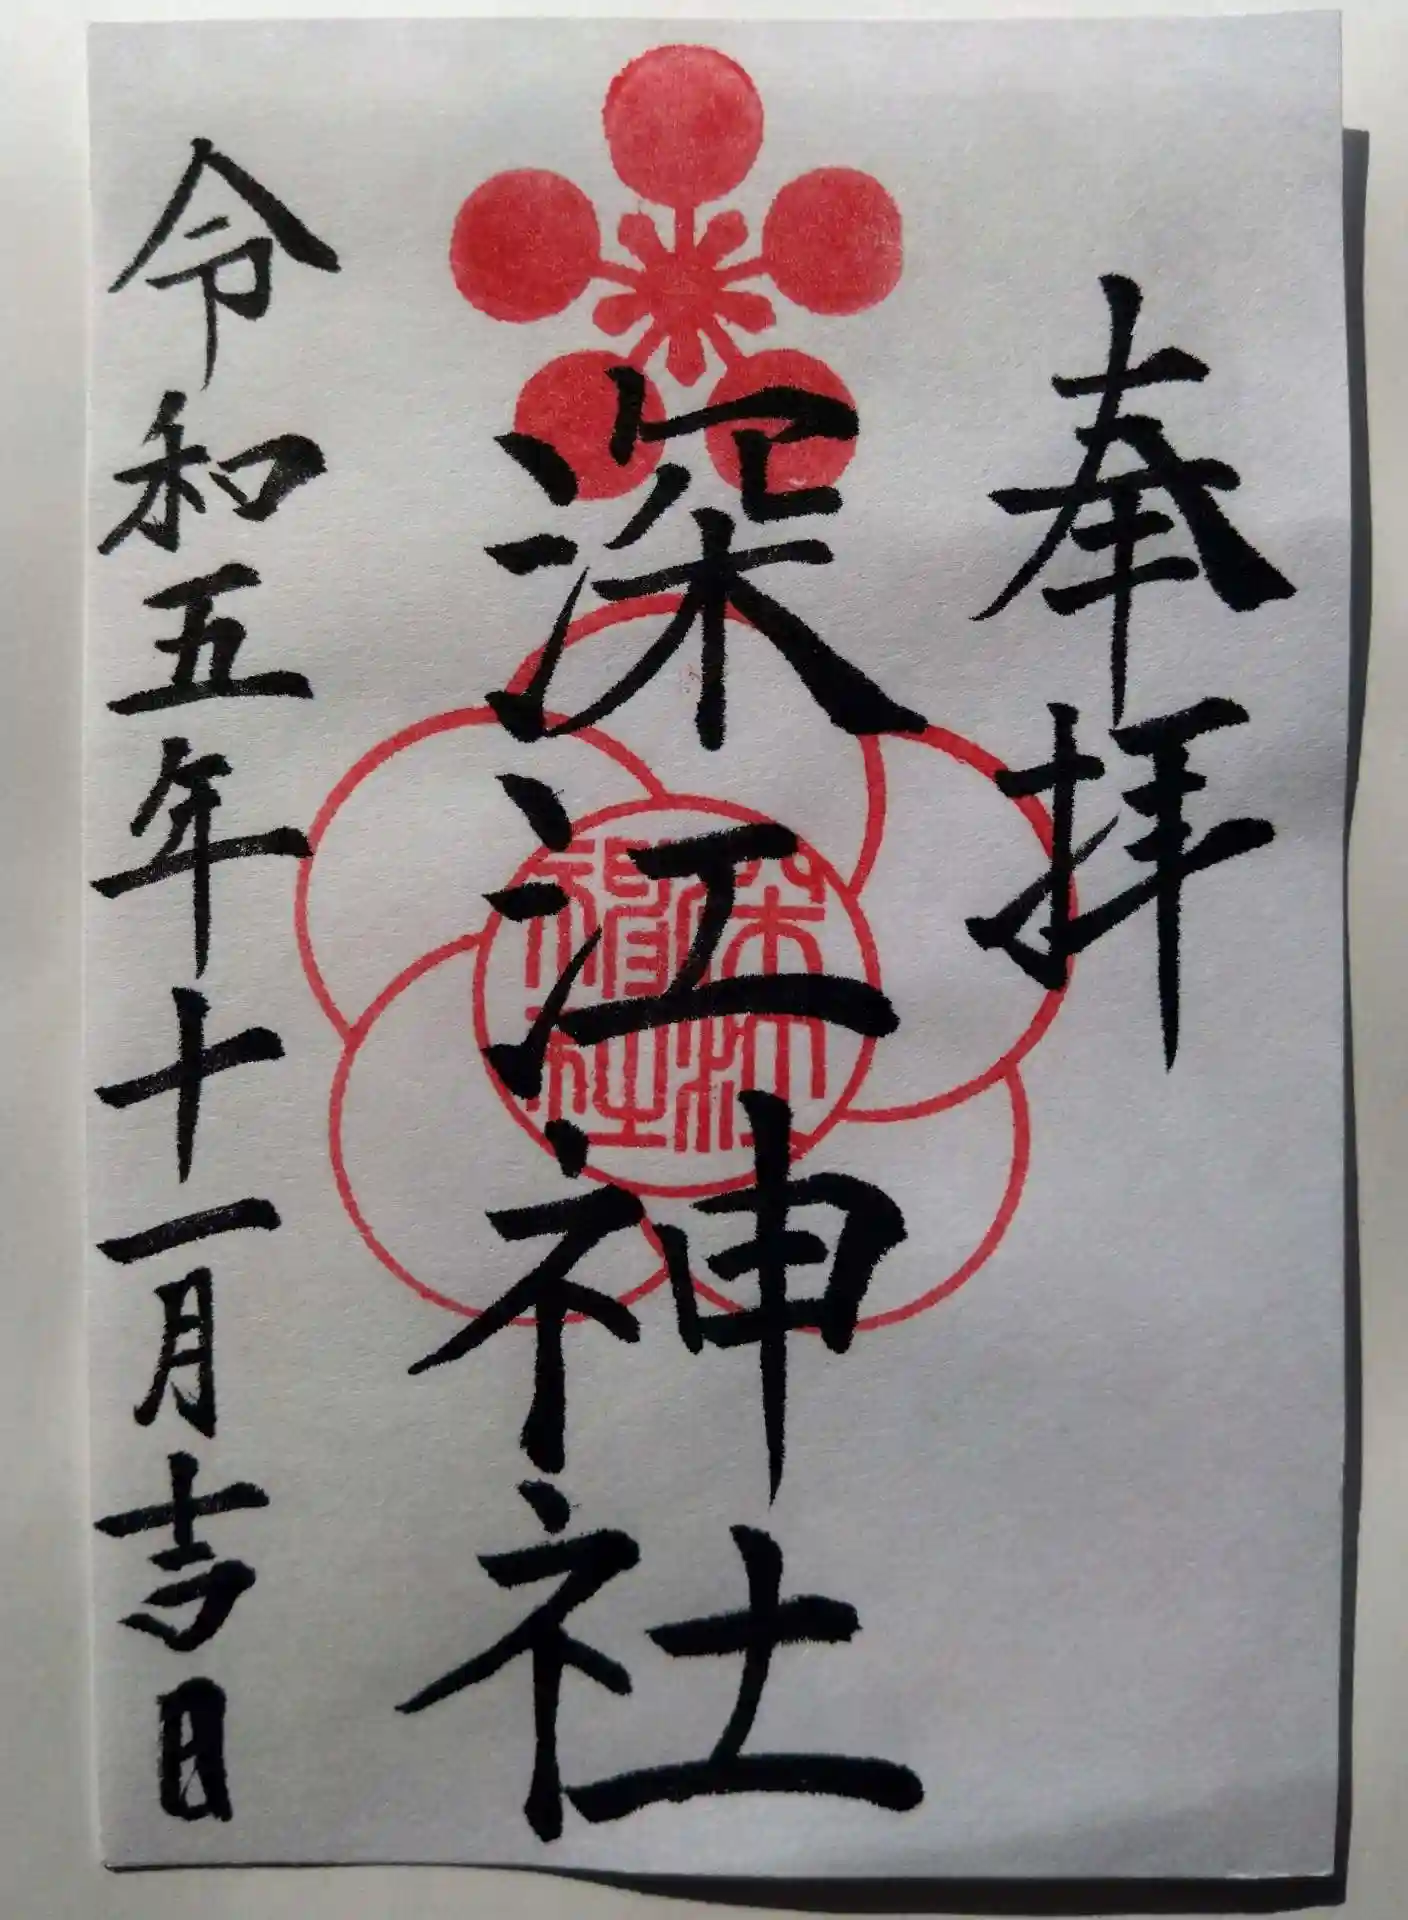 奉拝
深江神社
深江
神社
令和五年十一月吉日